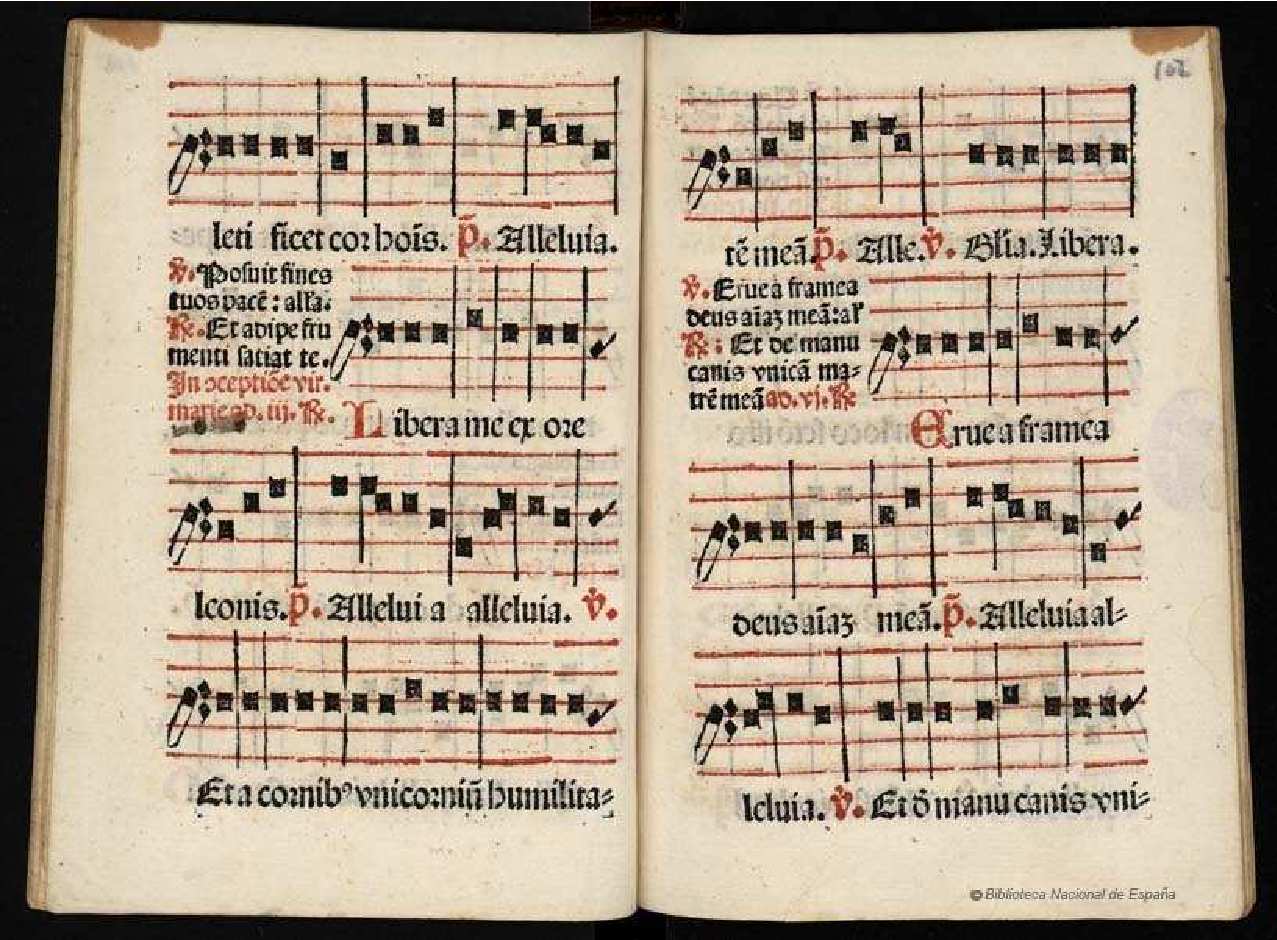 leti ficet cor hoīs. p̄. Alleluia.
v̄. Posuit fines
tuos pacē: alľa.
℟. Et adipe fru
menti satiat te.
In ɔceptiōe vir.
marie ad. iij. ℟.
Libera me ex ore
leonis. p̄. Allelui a alleluia. v̄.
Et a cornibꝰ vnicorniū humilita⸗
102
tē meā. p̄. Alle. v̄. Glīa. Libera.
v̄. Erue a framea
deus aīaʒ meā: aľ
℟: Et de manu
canis vnicā ma⸗
trē meā ad. vj. ℟
Erue a framea
deus aīaʒ meā. p̄. Alleluia al⸗
leluia. v̄. Et ď manu canis vni⸗
© Biblioteca Nacional de España